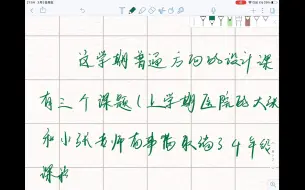 这学期普通方向的设计课
有三个课题（上学期医院的大张
和小张老师有事情取消了4年级
课